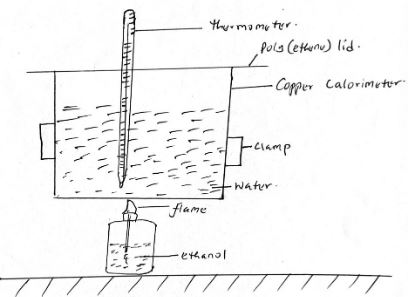 thermometer.
Poly(ethene) lid.
Copper Calorimeter.
clamp
water.
flame
ethanol